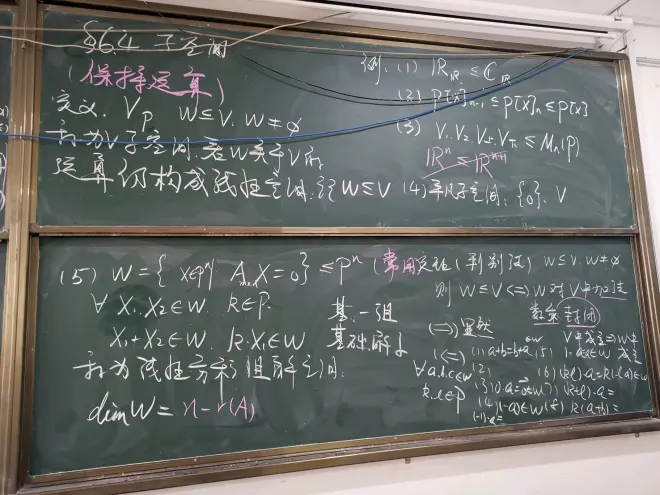 §6.4 子空间
(保持运算)
定义. V_P, W⊆V. W≠∅
称为V子空间. 若W关于V的
运算仍构成线性空间. 记W≤V
例: (1) ℝ_ℝ ≤ ℂ_ℝ
(2) P[x]_{n-1} ≤ P[x]_n ≤ P[x]
(3) V_1 V_2 V_上 V_下 ≤ M_n(P)
ℝ^n ≤ ℝ^{n+1}
(4) 平凡子空间: {0}. V
(5) W={ X∈P^n | A X=0 } ≤ P^n
∀ X_1, X_2∈W. k∈P.
X_1+X_2∈W. k·X_1∈W
称为线性方程组解空间.
dimW = n-r(A)
基:一组
基础解系
(常用 (判别法) W⊆V. W≠∅
则 W≤V <=> W对V中加法
数乘封闭
(=>) 显然
(<=) (1) a+b=b+a
∀a.b.c∈W
k.l∈P
(2)
(3) 0·a=0∈W
(4) (-a)∈W
(5) 1·a=a∈W
(6) (kl)·a=k(l·a)∈W
(7) (k+l)·a=
(8) k(a+b)=